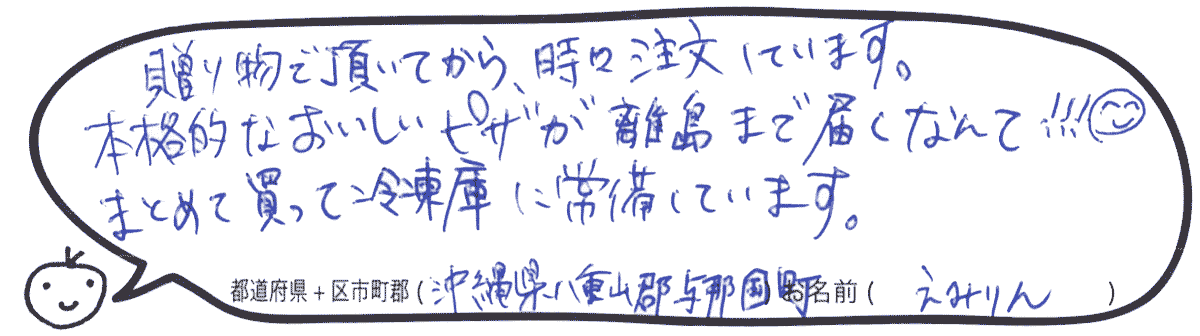 贈り物で頂いてから、時々注文しています。
本格的なおいしいピザが離島まで届くなんて!!!
まとめて買って冷凍庫に常備しています。
都道府県+区市町郡(沖縄県八重山郡与那国町)お名前(えみりん)